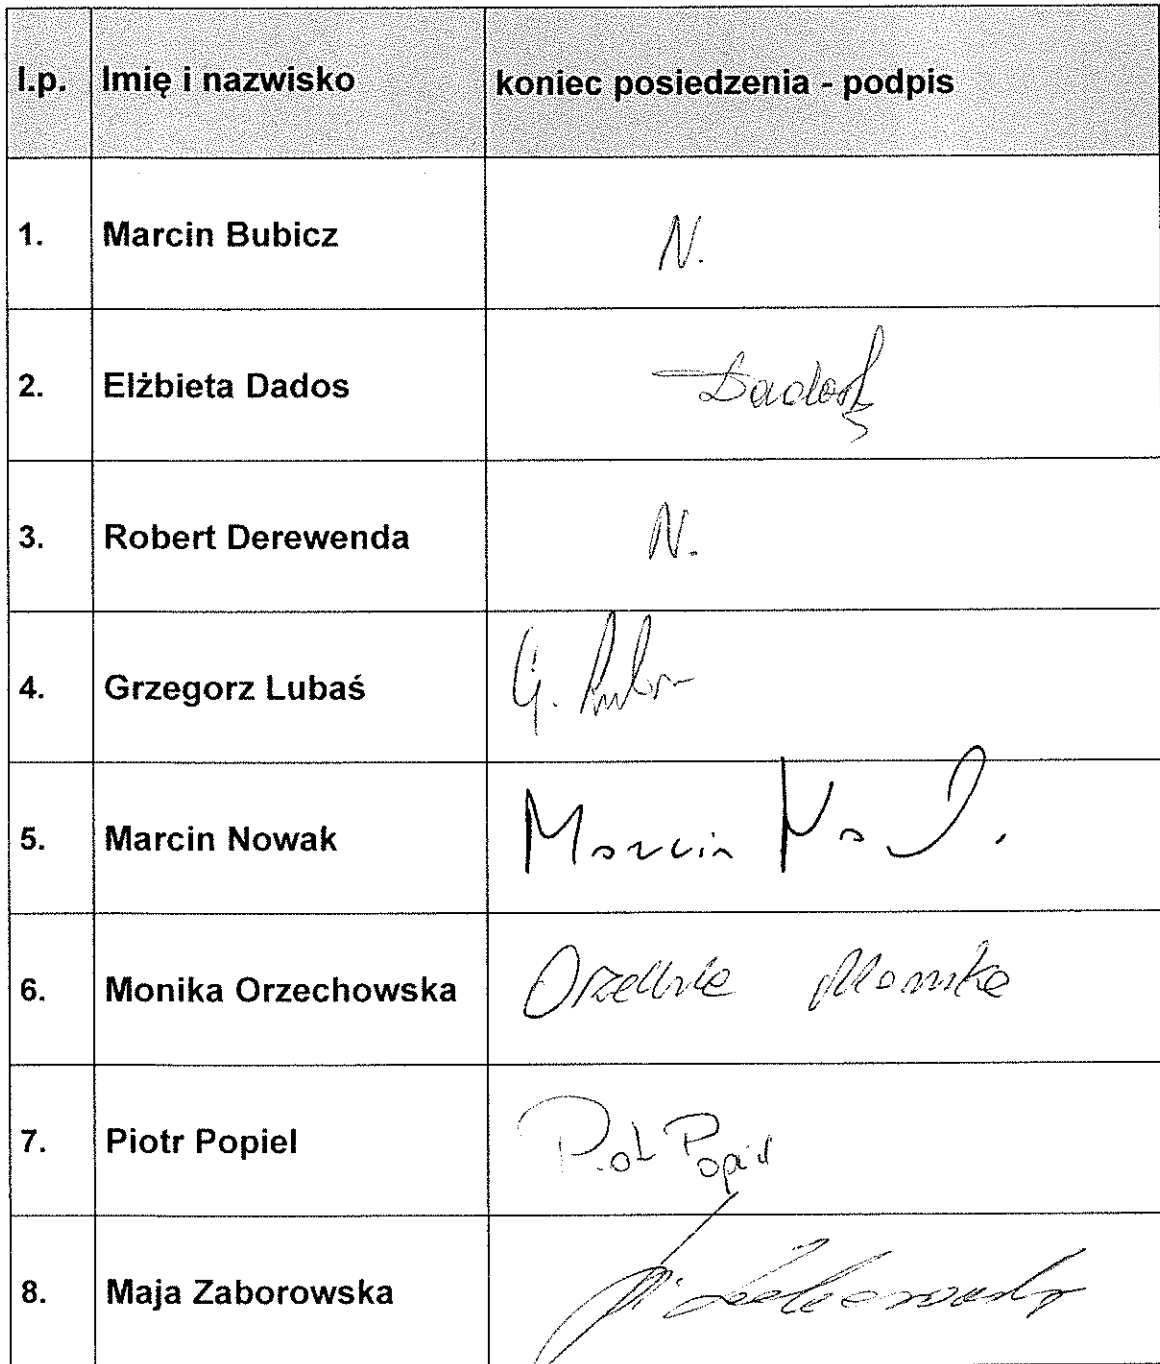 l.p. Imię i nazwisko koniec posiedzenia - podpis
1. Marcin Bubicz N.
2. Elżbieta Dados Dados
3. Robert Derewenda N.
4. Grzegorz Lubaś G.
5. Marcin Nowak Marcin
6. Monika Orzechowska Monika
7. Piotr Popiel Piot Popiel
8. Maja Zaborowska